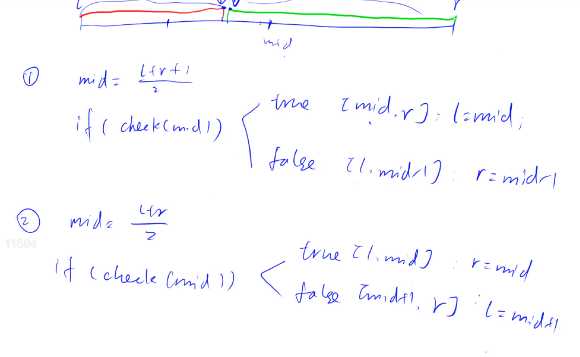 l r
mid
① mid = (l+r+1)/2
if ( check(mid) )
true [mid, r] : l=mid;
false [l, mid-1] : r=mid-1
② mid = (l+r)/2
if (check(mid))
true [l, mid] : r=mid
false [mid+1, r] : l=mid+1